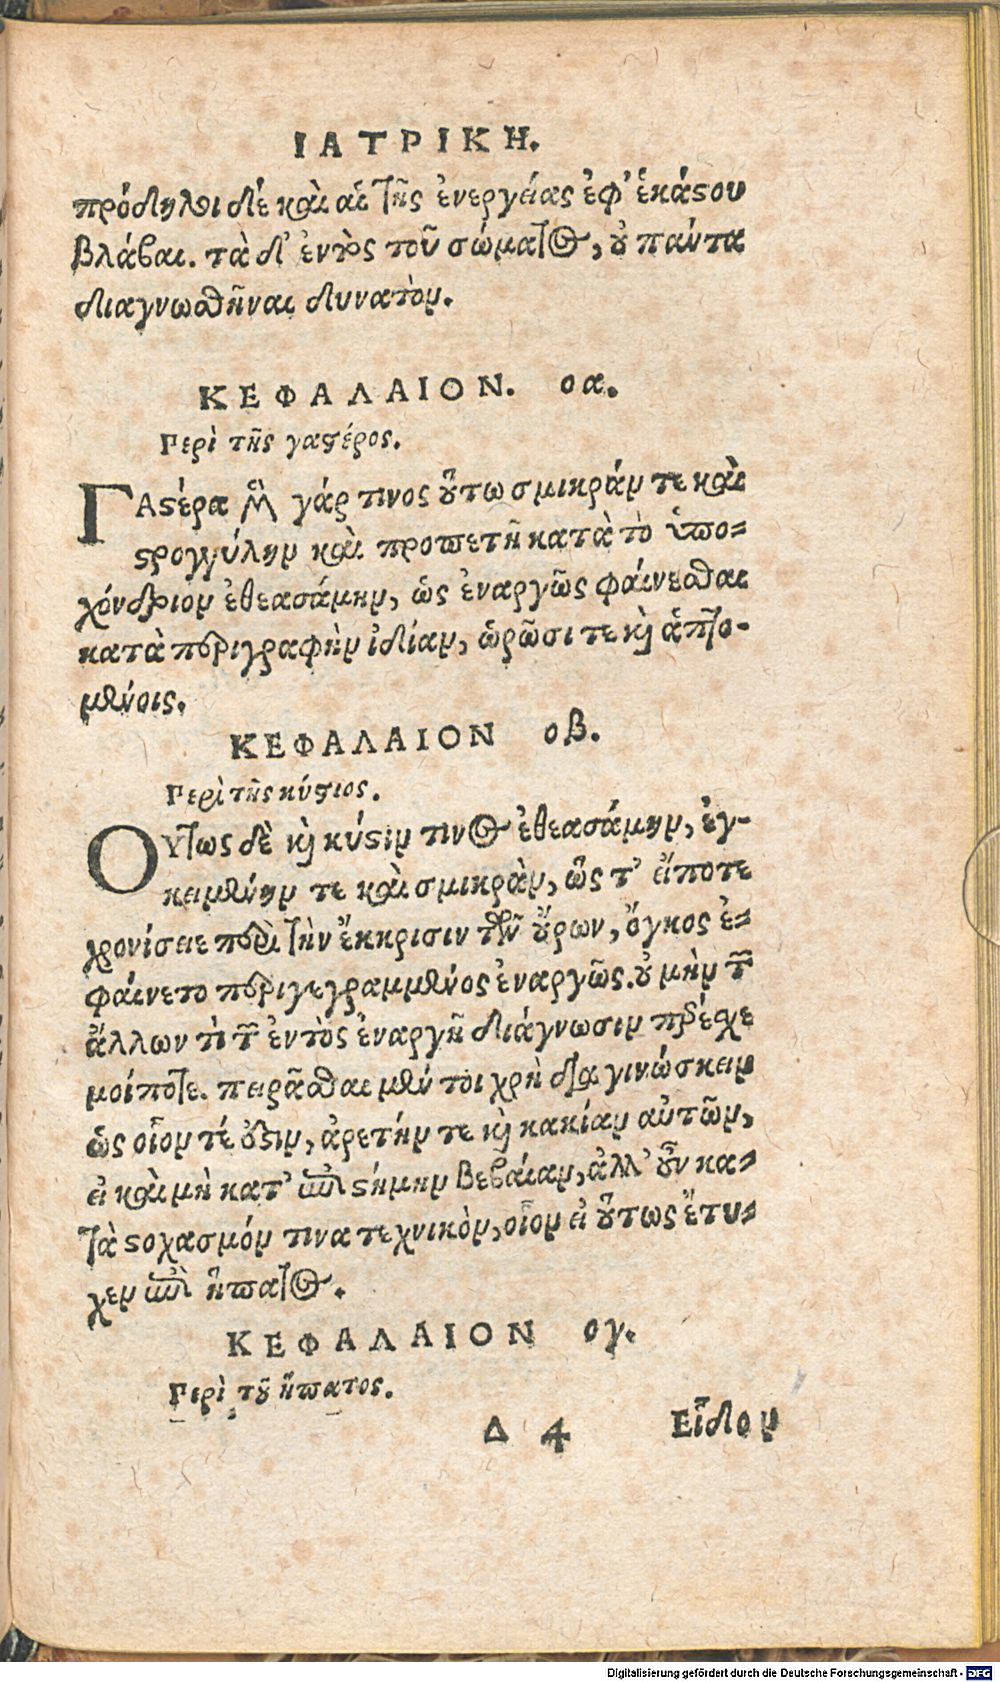 ΙΑΤΡΙΚΗ.
πρόδηλοι δέ καὶ αἱ τῆς ἐνεργείας ἐφ' ἑκάστου
βλάβαι. τὰ δ' ἐντὸς τοῦ σώματος, οὐ πάντα
διαγνωσθῆναι δυνατὸν.
ΚΕΦΑΛΑΙΟΝ. οα.
Περὶ τῆς γαστέρος.
ΓΑστέρα μὲν γάρ τινος οὕτω σμικράν τε καὶ
στρογγύλην καὶ προπετῆ κατὰ τὸ ὑπο-
χόνδριον ἐθεασάμην, ὡς ἐναργῶς φαίνεσθαι
κατὰ περιγραφὴν ἰδίαν, ὡρῶσι τε καὶ ἁπτο-
μένοις.
ΚΕΦΑΛΑΙΟΝ οβ.
Περὶ τῆς κύστιος.
ΟΥτως δὲ καὶ κύστιν τινος ἐθεασάμην, ἐγ-
κειμένην τε καὶ σμικρὰν, ὥς τ' εἴποτε
χρονίσειε περὶ τὴν ἔκκρισιν τῶν οὔρων, ὄγκος ἐ-
φαίνετο περιγεγραμμένος ἐναργῶς. οὐ μὴν τῶν
ἄλλων τὶ τῶν ἐντὸς ἐναργῆ διάγνωσιν παρέσχε
μοί ποτε. πειρᾶσθαι μέν τοι χρὴ διαγινώσκειν
ὡς οἷον τέ ἐστιν, ἀρετήν τε καὶ κακίαν αὐτῶν,
εἰ καὶ μὴ κατ' ἐπιστήμην βεβαίαν, ἀλλ' οὖν κα-
τὰ στοχασμόν τινα τεχνικὸν, οἷον εἰ οὕτως ἔτυ-
χεν ἐπὶ ἥπατος.
ΚΕΦΑΛΑΙΟΝ ογ.
Περὶ τοῦ ἥπατος.
Δ 4 Εἶδον
Digitalisierung gefördert durch die Deutsche Forschungsgemeinschaft - DFG